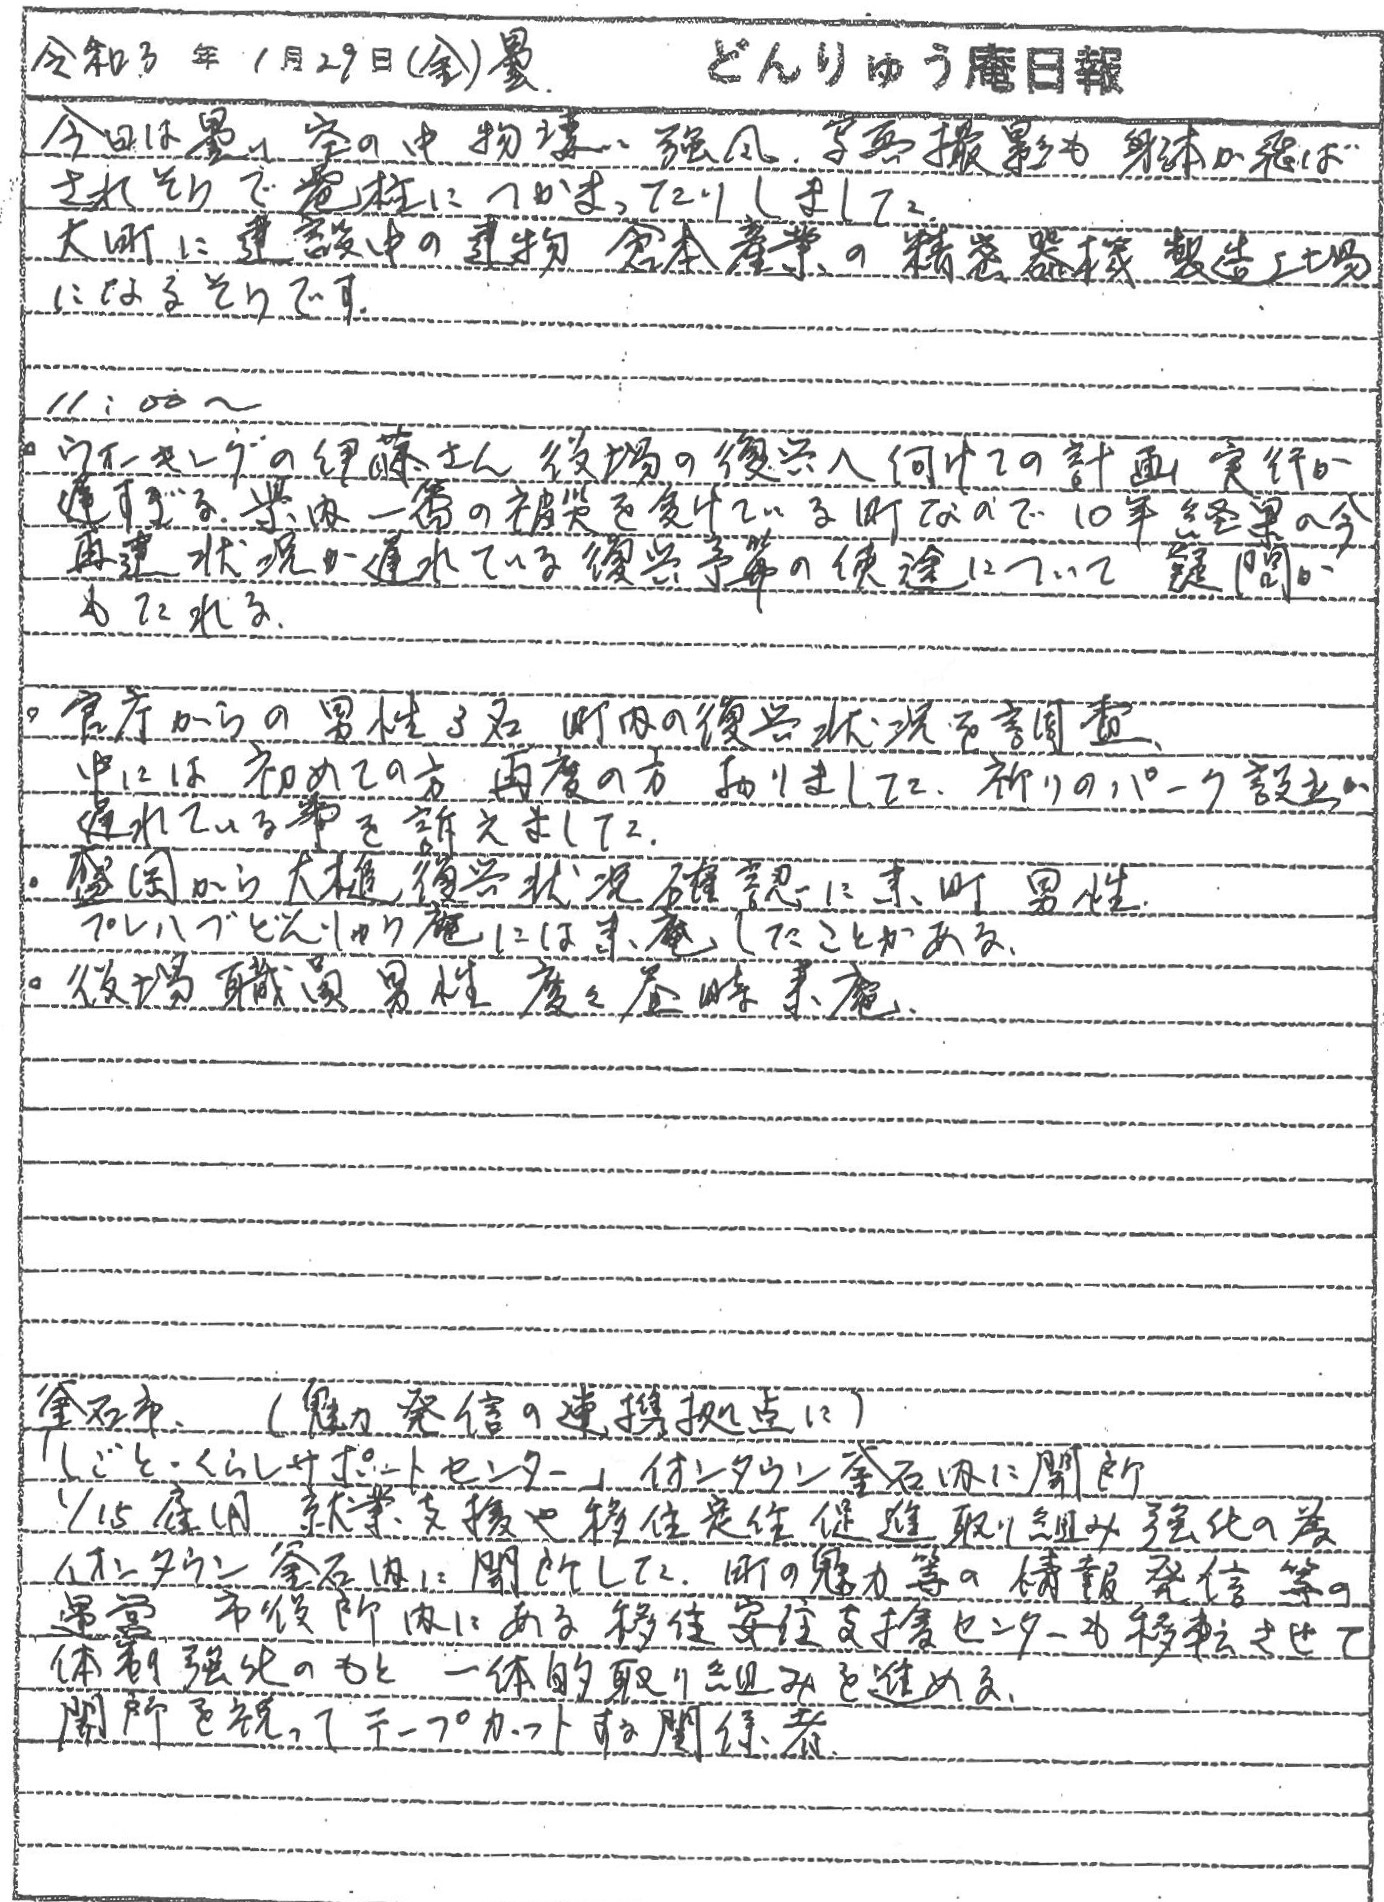 令和3年1月29日(金)曇. どんりゅう庵日報
今日は曇い空の中物凄い強風. 写真撮影も身体が飛ば
されそうで電柱につかまったりしました.
大町に建設中の建物 倉本産業の精密器機製造工場
になるそうです.
11:00〜
。ウォーキングの伊藤さん 役場の復興へ向けての計画実行が
遅すぎる. 県内一番の被災を受けている町なので10年経過の今
再建状況が遅れている復興予算の使途について疑問が
もたれる.
。官庁からの男性3名 町内の復興状況を調査、
中には初めての方 再度の方 おりました. 祈りのパーク設立が
遅れている事を訴えました.
。盛岡から大槌復興状況確認に来町 男性.
プレハブどんりゅう庵には来庵したことがある.
。役場職員男性 度々昼時来庵.
釜石市. (魅力発信の連携拠点に)
「しごと・くらしサポートセンター」イオンタウン釜石内に開所
1/15 産用 就業支援や移住定住促進取り組み強化の為
イオンタウン釜石内に開所した. 町の魅力等の情報発信等の
運営 市役所内にある移住安住支援センターも移転させて
体制強化のもと 一体的取り組みを進める.
開所を祝ってテープカットする関係者.